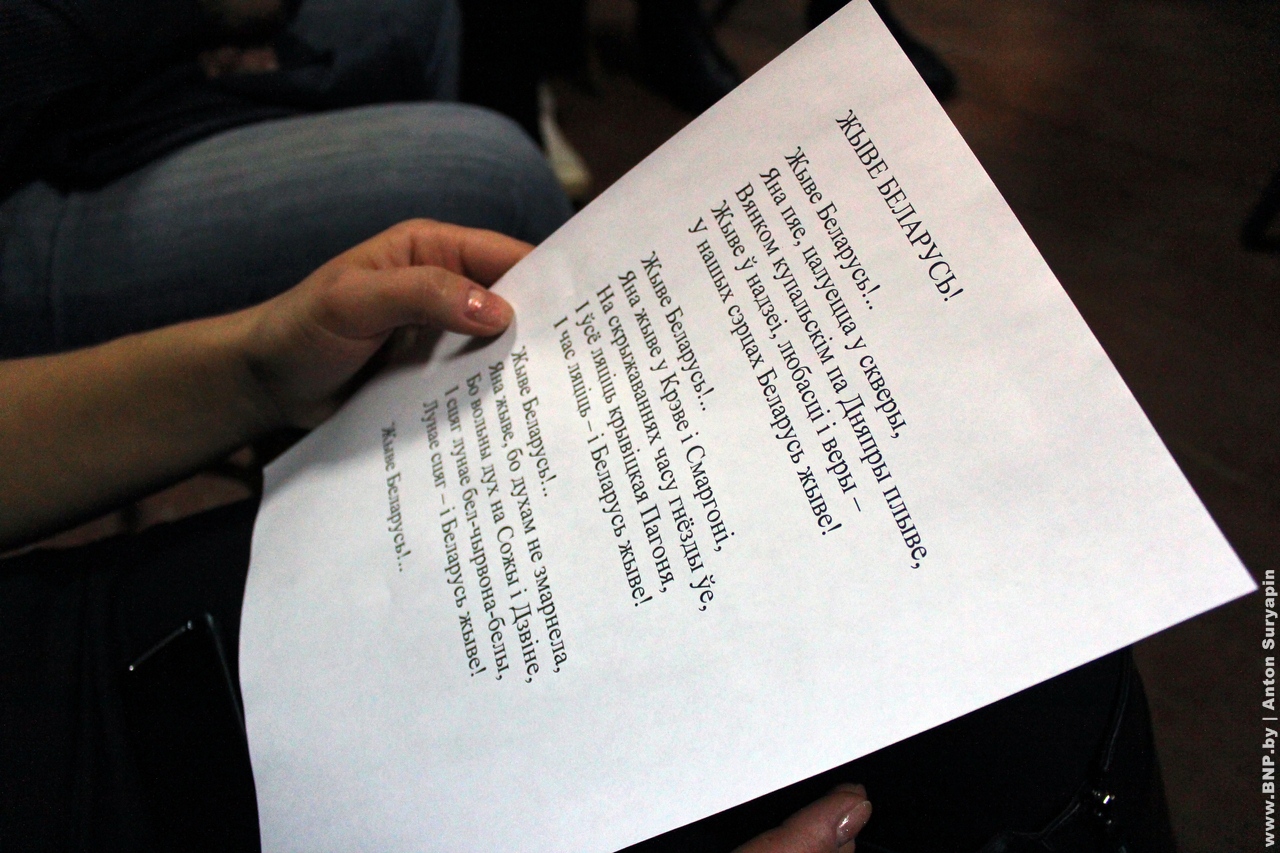 ЖЫВЕ БЕЛАРУСЬ!
Жыве Беларусь!..
Яна пяе, цалуецца у скверы,
Вянком купальскім па Дняпры плыве,
Жыве ў надзеі, любасці і веры –
У нашых сэрцах Беларусь жыве!
Жыве Беларусь!..
Яна жыве у Крэве і Смаргоні,
На скрыжаваннях часу гнёзды ўе,
І ўсё ляціць крывіцкая Пагоня,
І час ляціць – і Беларусь жыве!
Жыве Беларусь!..
Яна жыве, бо духам не змарнела,
Бо вольны дух на Сожы і Дзвіне,
І сцяг лунае бел-чырвона-белы,
Лунае сцяг – і Беларусь жыве!
Жыве Беларусь!..
www.BNP.by | Anton Suryapin